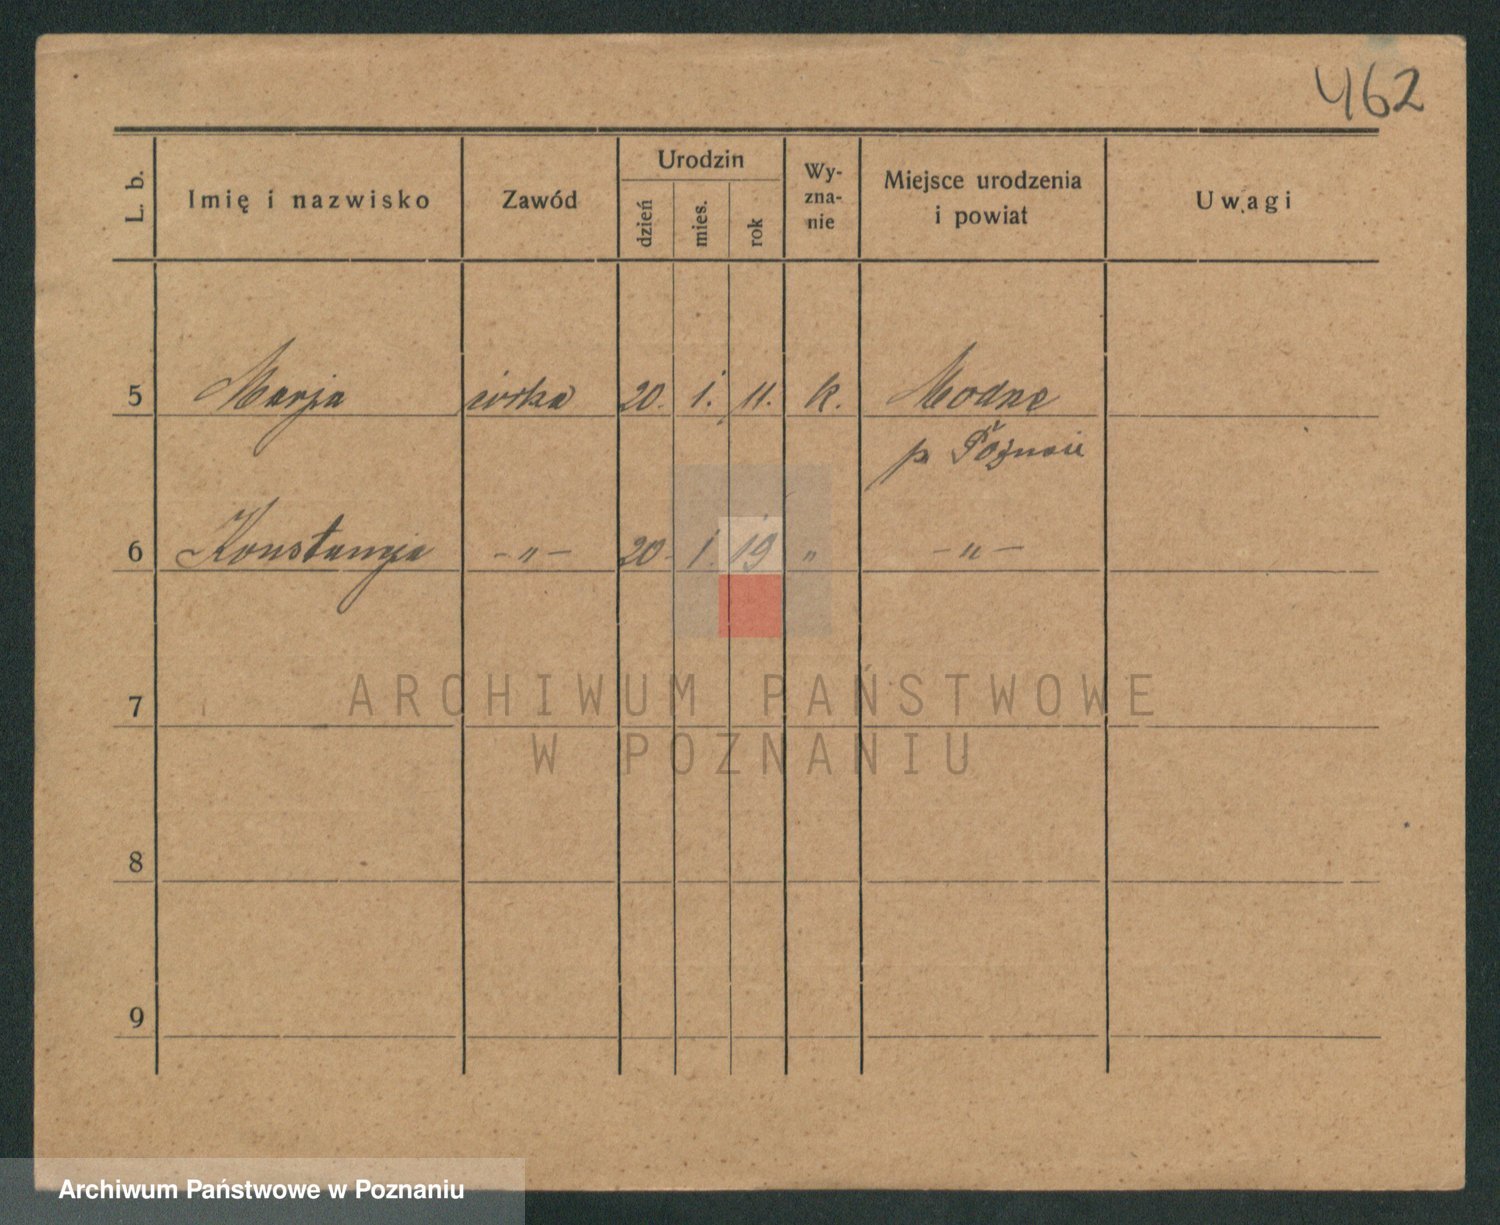 462
L. b. Imię i nazwisko Zawód Urodzin dzień mies. rok Wy-zna-nie Miejsce urodzenia i powiat Uwagi
5 Marja córka 20. 1. 11. k. Modrze
p Poznań
6 Konstancja -„- 20. 1. 19 „ -„-
7
ARCHIWUM PAŃSTWOWE
W POZNANIU
8
9
Archiwum Państwowe w Poznaniu